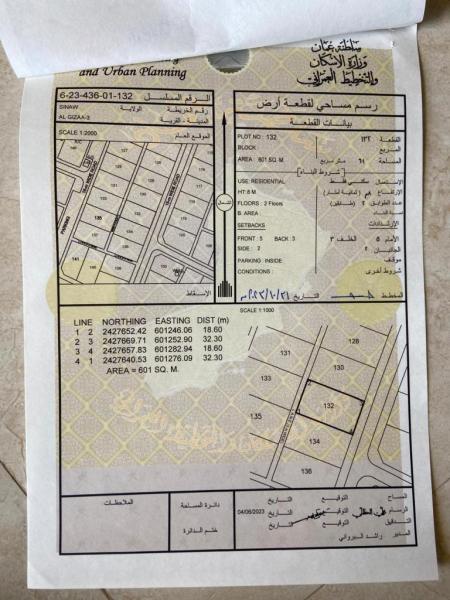 سلطنة عمان
وزارة الإسكان
والتخطيط العمراني
and Urban Planning
الرقم المسلسل 6-23-436-01-132
SINAW الولاية رقم الخريطة
AL GIZAA-3 المدينة - القرية
SCALE 1:2000 الموقع العام
الشمال
الإسقاط
رسم مساحي لقطعة أرض
بيانات القطعة
PLOT NO : 132 القطعة ١٣٢
BLOCK المربع
AREA : 601 SQ. M. المساحة ٦٠١ متر مربع
شروط البناء
USE: RESIDENTIAL الاستعمال سكني فقط
HT: 8 M الارتفاع ٨م (ثمانية أمتار)
FLOORS : 2 Floors عدد الطوابق ٢ (طابقين)
B. AREA
SETBACKS الارتدادات
FRONT : 5 BACK : 3 الأمام ٥ الخلف ٣
SIDE : 2 الجانبان ٢
PARKING :INSIDE موقف
CONDITIONS شروط أخرى
المخطط التاريخ
SCALE 1:1000
LINE NORTHING EASTING DIST (m)
1 2 2427652.42 601246.06 18.60
2 3 2427669.71 601252.90 32.30
3 4 2427657.83 601282.94 18.60
4 1 2427640.53 601276.09 32.30
AREA = 601 SQ. M.
128
131
130
133
132
135
134
136
الملاحظات
دائرة المساحة
ختم الدائرة
المساح التوقيع التاريخ
الرسام التوقيع التاريخ 04/06/2023
التدقيق التوقيع التاريخ
المدير راشد البرواني